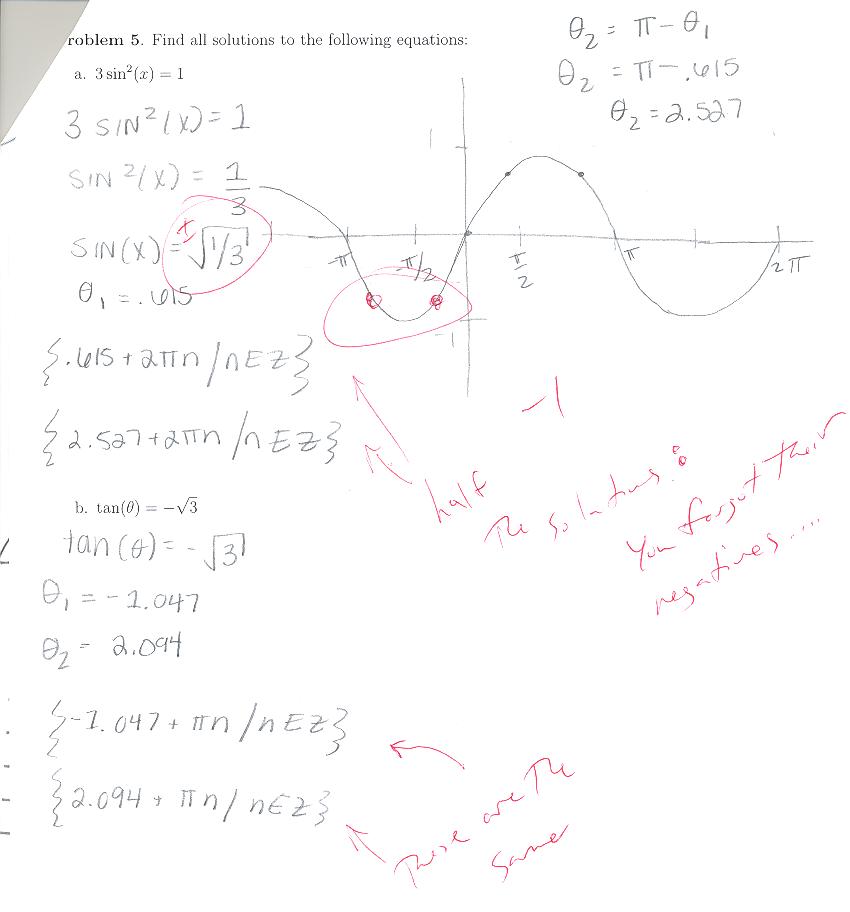 roblem 5. Find all solutions to the following equations:
a. 3 sin²(x) = 1
θ₂ = π - θ₁
θ₂ = π - .615
θ₂ = 2.527
3 SIN²(X) = 1
SIN²(X) = 1/3
SIN(X) = ±√1/3
θ₁ = .615
1
-π
-π/2
π/2
π
2π
-1
{.615 + 2πn / n E Z}
{2.527 + 2πn / n E Z}
-1
half The solutions:
You forgot their
negatives....
b. tan(θ) = -√3
tan(θ) = -√3
θ₁ = -1.047
θ₂ = 2.094
{-1.047 + πn / n E Z}
{2.094 + πn / n E Z}
These are The
same